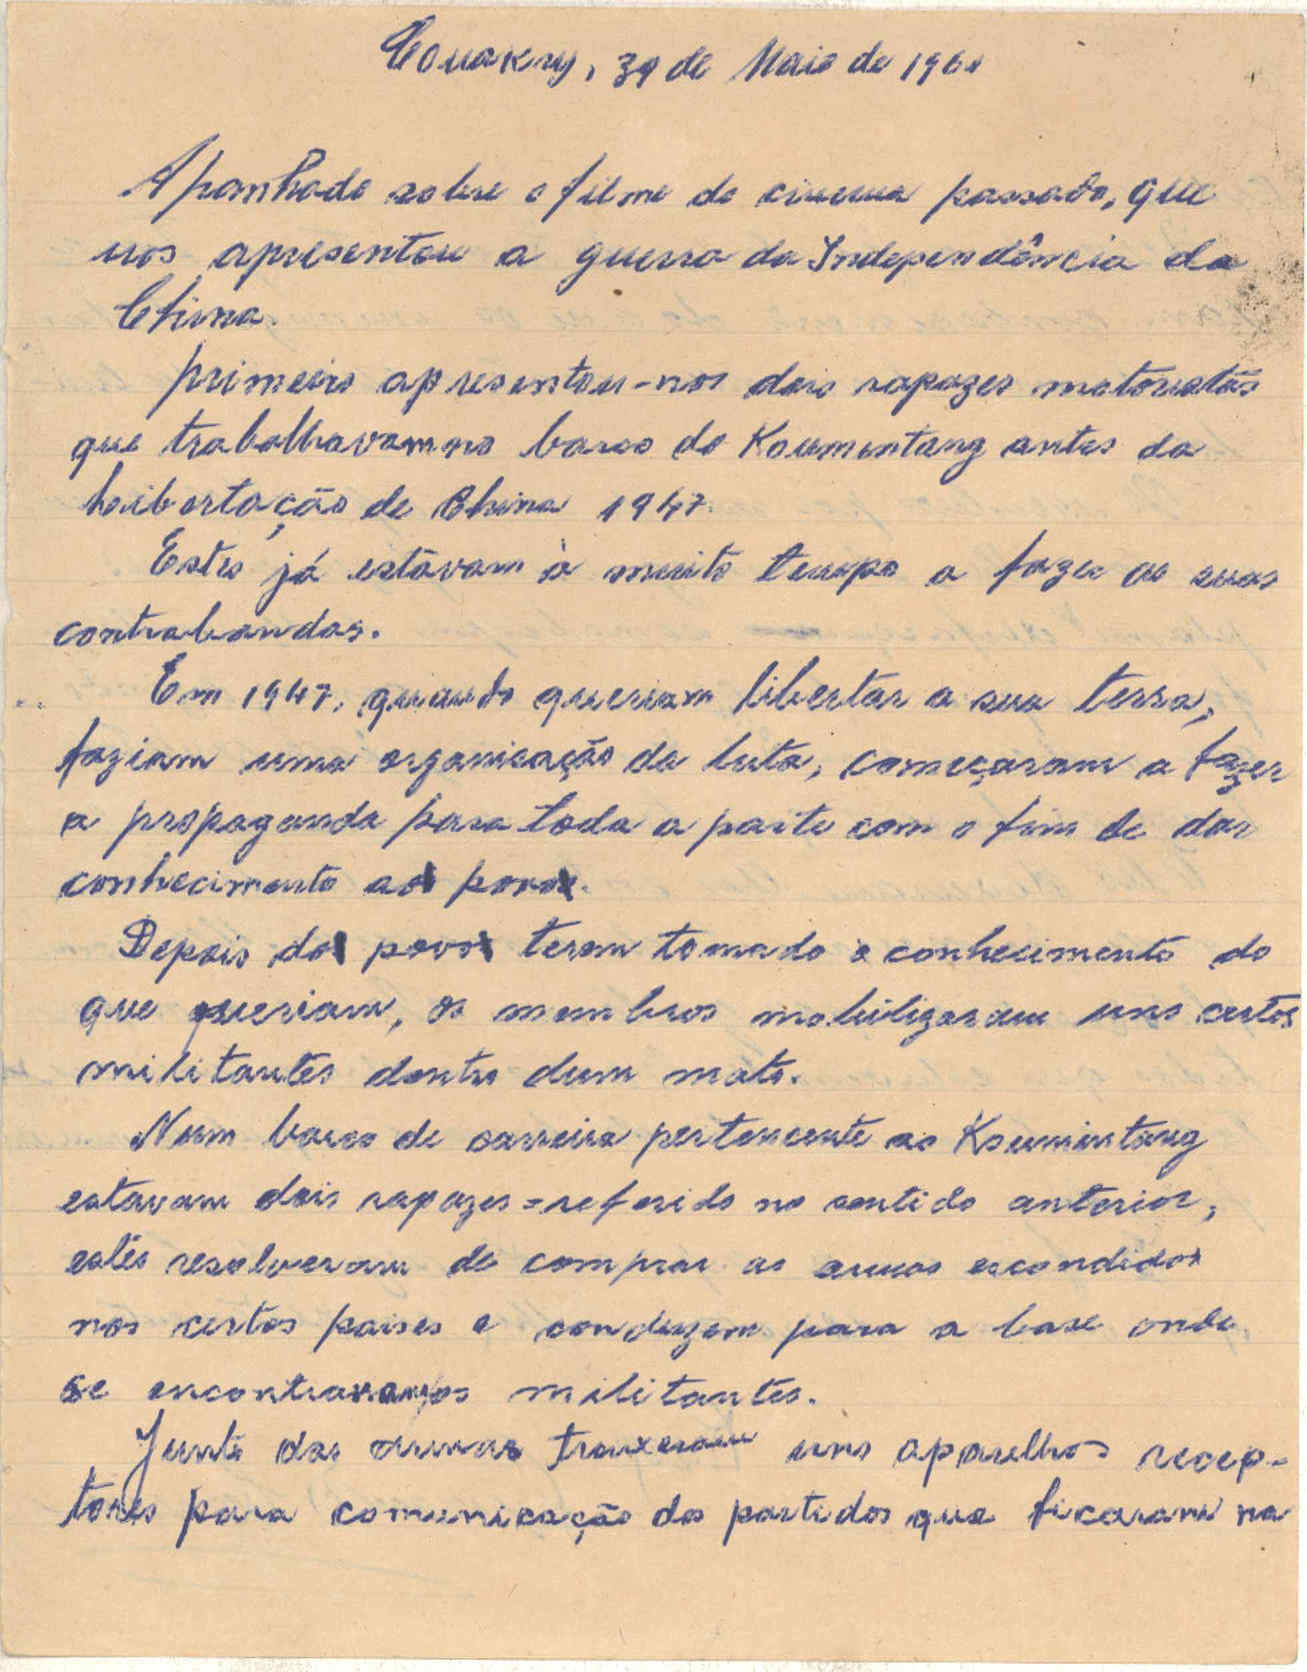 Conakry, 30 de Maio de 196
Apanhado sobre o filme de cinema passado, que
nos apresentou a guerra da Independência da
China.
primeiro apresentou-nos dois rapazes motoristas
que trabalhavam no barco do Koumentang antes da
Leibertação de China 1947.
Estes já estavam à muito tempo a fazer as suas
contrabandas.
Em 1947, quando queriam libertar a sua terra,
faziam uma organisação da luta, começaram a fazer
a propaganda para toda a parte com o fim de dar
conhecimento ao povo.
Depois do povo terem tomado o conhecimento do
que queriam, os membros mobilizaram uns certos
militantes dentro dum mato.
Num barco de carreira pertencente ao Koumintang
estavam dois rapazes=referido no sentido anterior,
estes resolveram de comprar as armas escondidos
nos certos paises e conduzem para a base onde
se encontravam os militantes.
Junto das armas trouxeram uns aparelhos recep-
tores para comunicação dos partidos que ficaram na